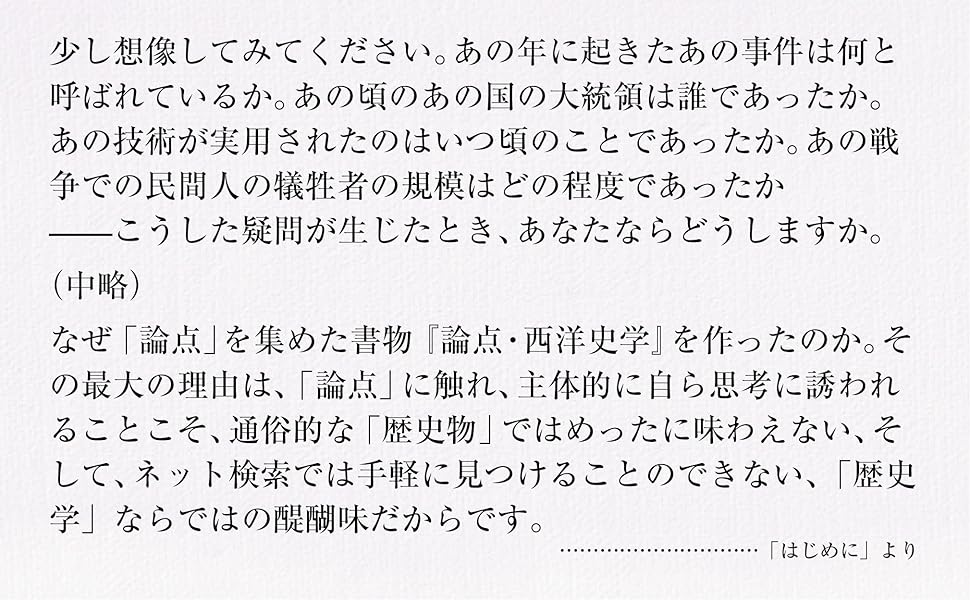 少し想像してみてください。あの年に起きたあの事件は何と
呼ばれているか。あの頃のあの国の大統領は誰であったか。
あの技術が実用されたのはいつ頃のことであったか。あの戦
争での民間人の犠牲者の規模はどの程度であったか
――こうした疑問が生じたとき、あなたならどうしますか。
（中略）
なぜ「論点」を集めた書物『論点・西洋史学』を作ったのか。そ
の最大の理由は、「論点」に触れ、主体的に自ら思考に誘われ
ることこそ、通俗的な「歴史物」ではめったに味わえない、そ
して、ネット検索では手軽に見つけることのできない、「歴史
学」ならではの醍醐味だからです。
……………………………「はじめに」より